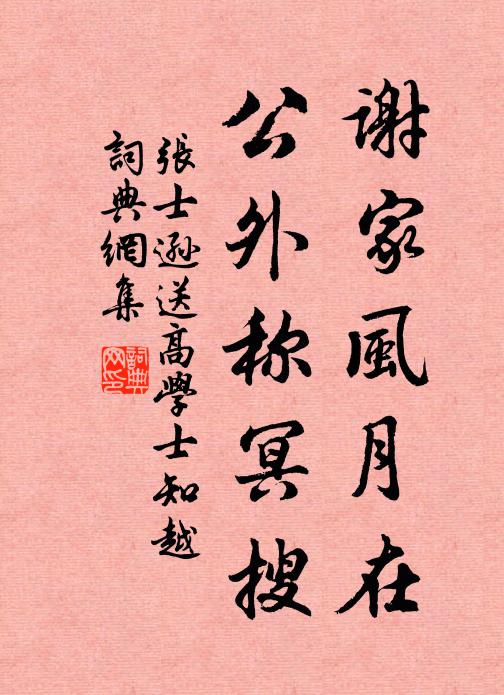 謝家風月在
公外称冥搜
張士遜送高學士知越
詞典網集
詞典網印